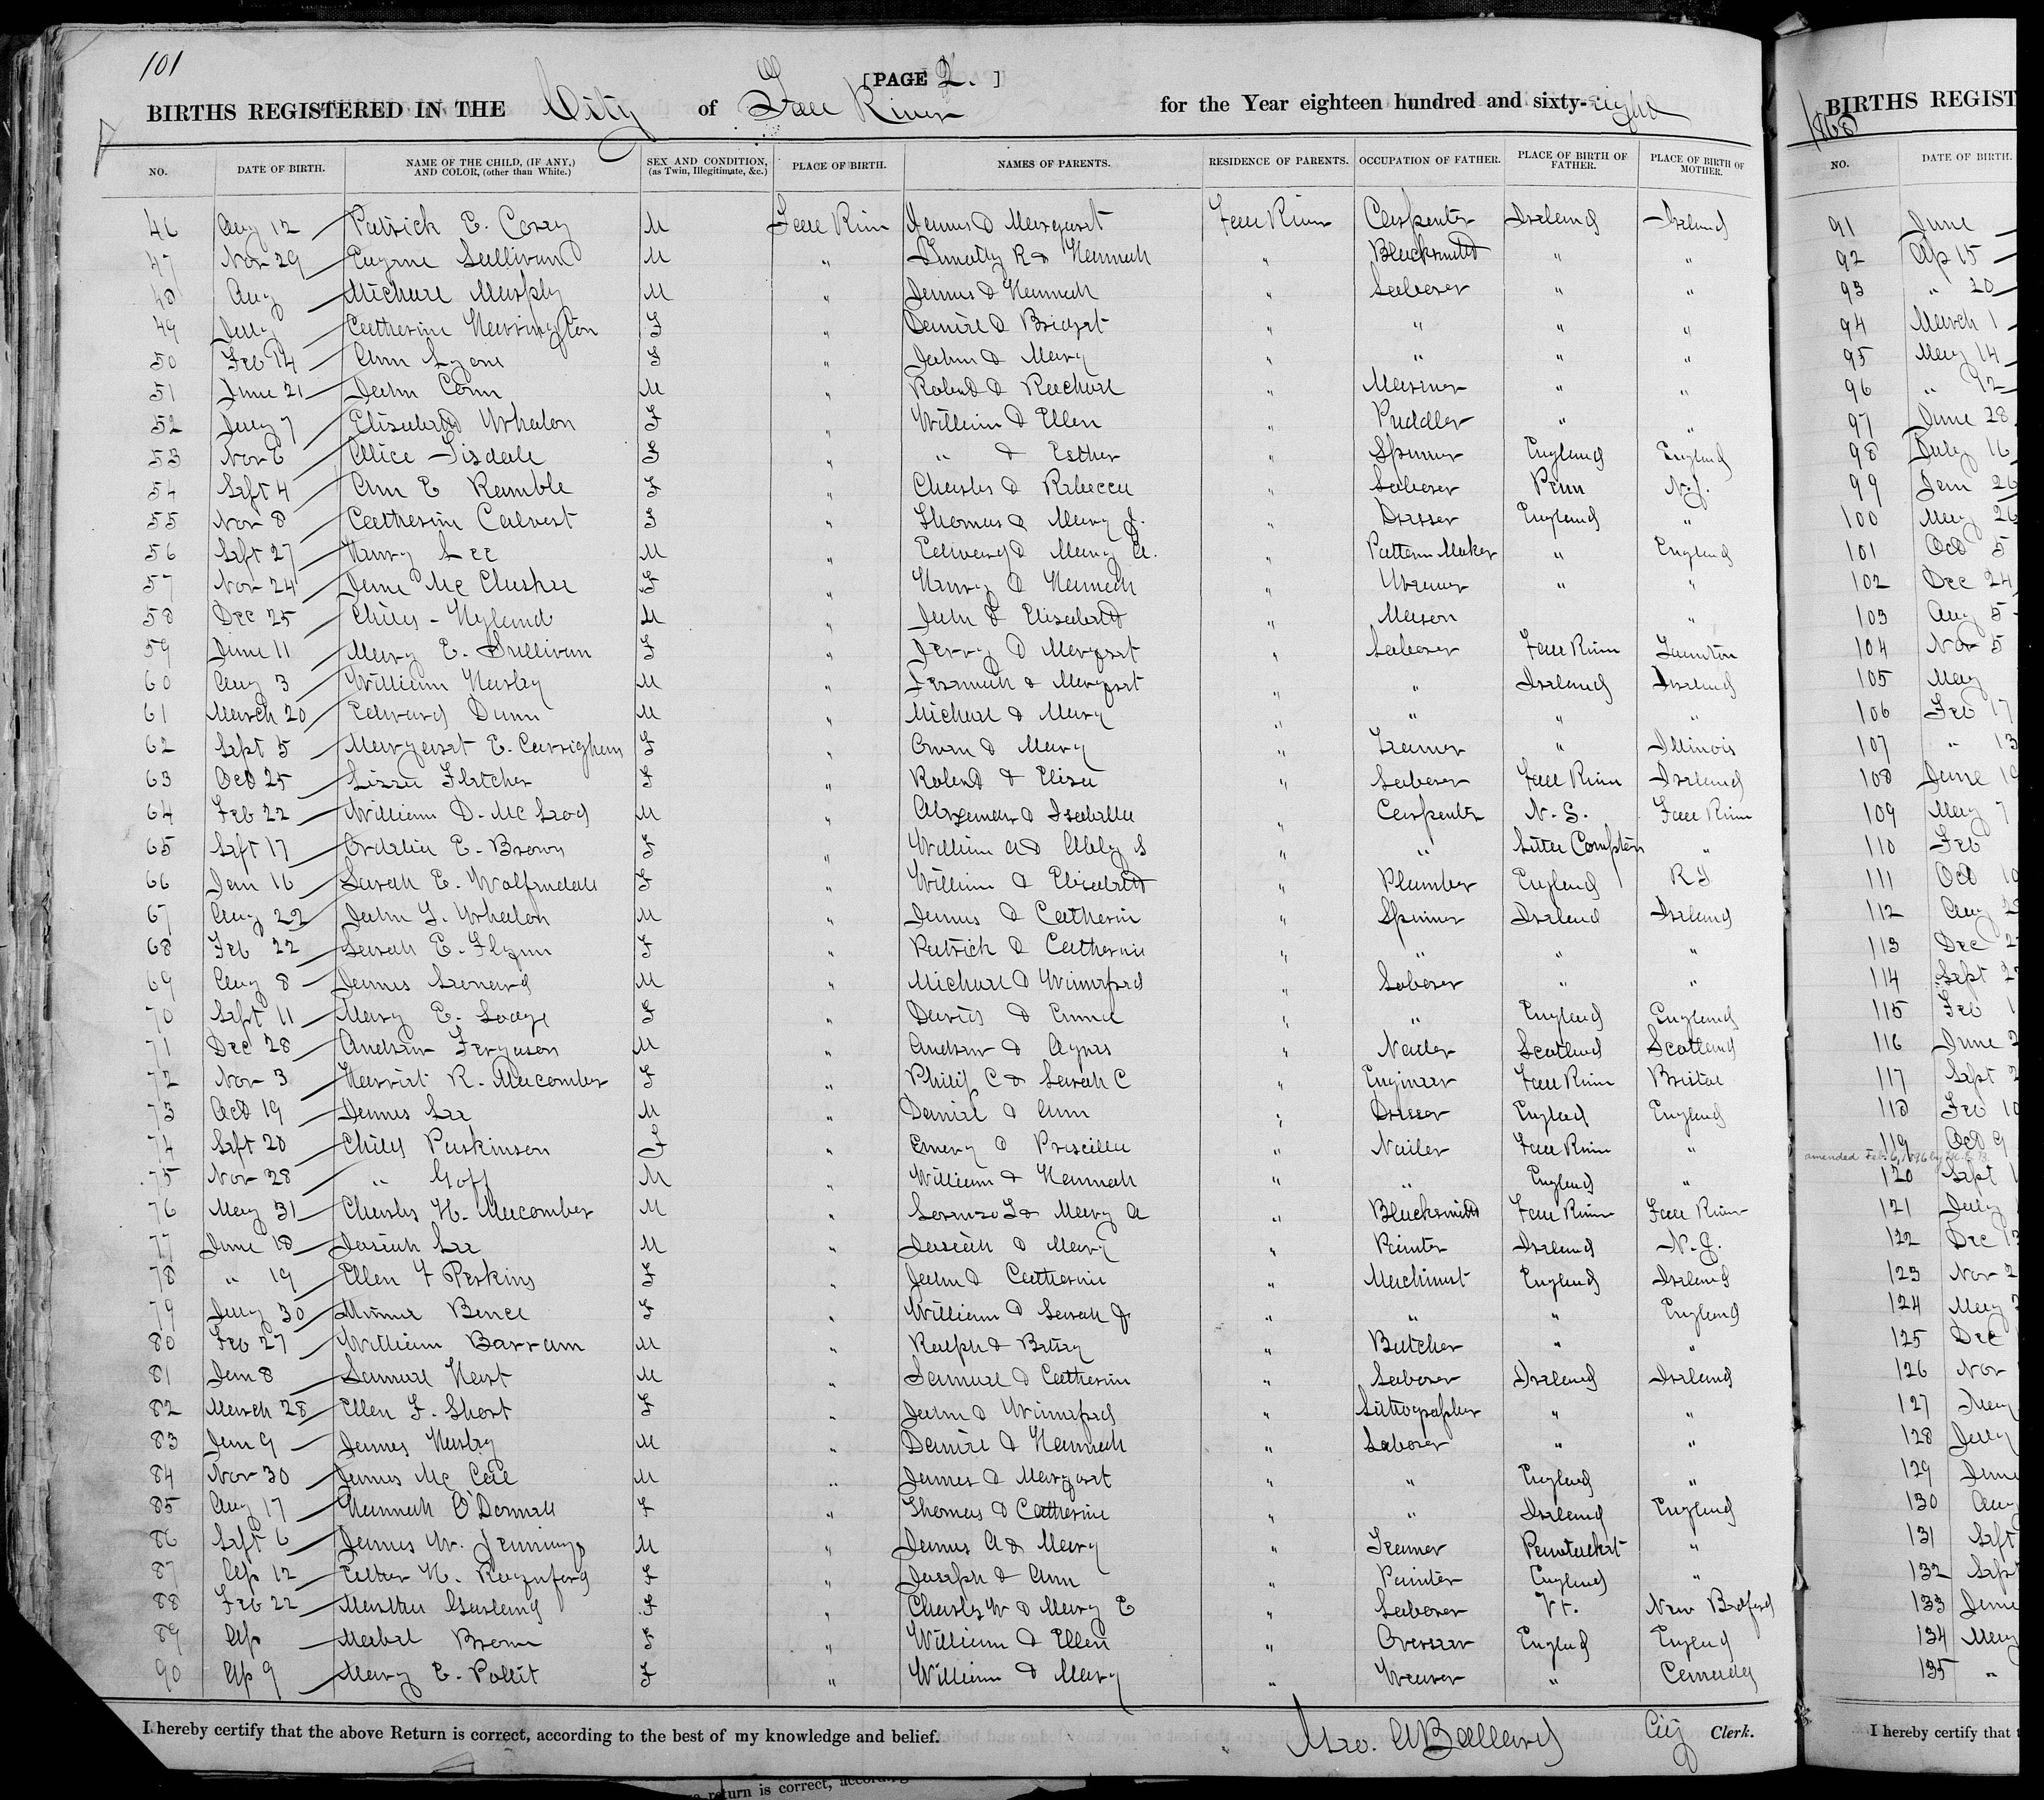 101
[PAGE 2.]
BIRTHS REGISTERED IN THE City of Fall River for the Year eighteen hundred and sixty-eight
NO. DATE OF BIRTH. NAME OF THE CHILD, (IF ANY,) AND COLOR, (other than White.) SEX AND CONDITION, (as Twin, Illegitimate, &c.) PLACE OF BIRTH. NAMES OF PARENTS. RESIDENCE OF PARENTS. OCCUPATION OF FATHER. PLACE OF BIRTH OF FATHER. PLACE OF BIRTH OF MOTHER.
46 Aug 12 Patrick E. Corey M Fall River James & Margaret Fall River Carpenter Ireland Ireland
47 Nov 29 Eugene Sullivan M " Timothy R & Hannah " Blacksmith " "
48 Aug Michael Murphy M " James & Hannah " Laborer " "
49 July Catherine Harrington F " Daniel & Bridget " " " "
50 Feb 14 Ann Lyons F " John & Mary " " " "
51 June 21 John Conn M " Robert & Rachael " Mariner " "
52 July 7 Elizabeth Whalon F " William & Ellen " Puddler " "
53 Nov 6 Alice Tisdale F " " & Esther " Spinner England England
54 Sept 4 Ann E Ramble F " Charles & Rebecca " Laborer Penn N.J.
55 Nov 8 Catherine Calvert F " Thomas & Mary J. " Dresser England "
56 Sept 27 Henry Lee M " Edward & Mary A. " Pattern Maker " England
57 Nov 24 Jane McCluskee F " Henry & Hannah " Weaver " "
58 Dec 25 Child - Hyland M " John & Elizabeth " Mason "
59 June 11 Mary E. Sullivan F " Jerry & Margaret " Laborer Fall River Taunton
60 Aug 3 William Harley M " Jeremiah & Margaret " " Ireland Ireland
61 March 20 Edward Dunn M " Michael & Mary " " " "
62 Sept 5 Margaret E. Carrigham F " Owen & Mary " Teamer " Illinois
63 Oct 25 Lizzie Fletcher F " Robert & Eliza " Laborer Fall River Ireland
64 Feb 22 William D. McLeod M " & Isabella " Carpenter N.S. Fall River
65 Sept 17 Ordelia E. Brown F " William A & Abby S " " Little Compton "
66 Jan 16 Sarah E. Wolfendale F " William & Elizabeth " Plumber England R I
67 Aug 22 John T. Whalon M " James & Catherine " Spinner Ireland Ireland
68 Feb 22 Sarah E. Flynn F " Patrick & Catherine " " " "
69 Aug 8 James Leonard M " Michael & Winifred " Laborer " "
70 Sept 11 Mary E. Lodge F " David & Emma " " England England
71 Dec 28 Andrew Ferguson M " Andrew & Agnes " Nailer Scotland Scotland
72 Nov 3 Harriet R. Macomber F " Philip C & Sarah C " Engineer Fall River Bristol
73 Oct 19 James Lee M " Daniel & Ann " Dresser England England
74 Sept 20 Child Parkinson F " Emery & Priscilla " Nailer Fall River "
75 Nov 28 " Goff M " William & Hannah " " England "
76 May 31 Charles H. Macomber M " Lorenzo L & Mary A " Blacksmith Fall River Fall River
77 June 18 Josiah Lee M " Josiah & Mary " Painter Ireland N.J.
78 " 19 Ellen F Perkins F " John & Catherine " Machinist England Ireland
79 July 30 Minna Bence F " William & Sarah J. " " " England
80 Feb 27 William Barram M " Ralph & Betsy " Butcher " "
81 Jan 8 Samuel Hart M " Samuel & Catherine " Laborer Ireland Ireland
82 March 28 Ellen F. Short F " John & Winifred " Lithographer " "
83 Jan 9 James Harley M " Daniel & Hannah " Laborer " "
84 Nov 30 James McCall M " James & Margaret " " England "
85 Aug 17 Hannah O'Donnell F " Thomas & Catherine " " Ireland England
86 Sept 6 James W. Jennings M " James A & Mary " Teamer Pawtucket "
87 Ap 12 Esther H. Raynford F " Joseph & Ann " Painter England "
88 Feb 22 Martha Garland F " Charles W & Mary E " Laborer Vt. New Bedford
89 Ap Mabel Brown F " William & Ellen " Overseer England England
90 Ap 9 Mary E. Pollit F " William & Mary " Weaver " Canada
I hereby certify that the above Return is correct, according to the best of my knowledge and belief. Geo. A Ballard City Clerk.
return is correct, according
1868
BIRTHS REGIST
NO. DATE OF BIRTH.
91 June
92 Ap 15
93 " 20
94 March 1
95 May 14
96 " 92
97 June 28
98 July 16
99 Jan 26
100 May 26
101 Oct 5
102 Dec 24
103 Aug 5
104 Nov 5
105 May
106 Feb 17
107 " 13
108 June 19
109 May 7
110 Feb
111 Oct 10
112 Aug 28
113 Dec 2
114 Sept 2
115 Feb 1
116 June 2
117 Sept 2
118 Feb 10
119 Oct 9
amended Feb. 6, 1896 by
120 Sept 1
121 July
122 Dec 13
123 Nov 2
124 May 2
125 Dec
126 Nov
127 May
128 July
129 June
130 Aug
131 Sept
132 Sept
133 June
134 May
135 "
I hereby certify that t